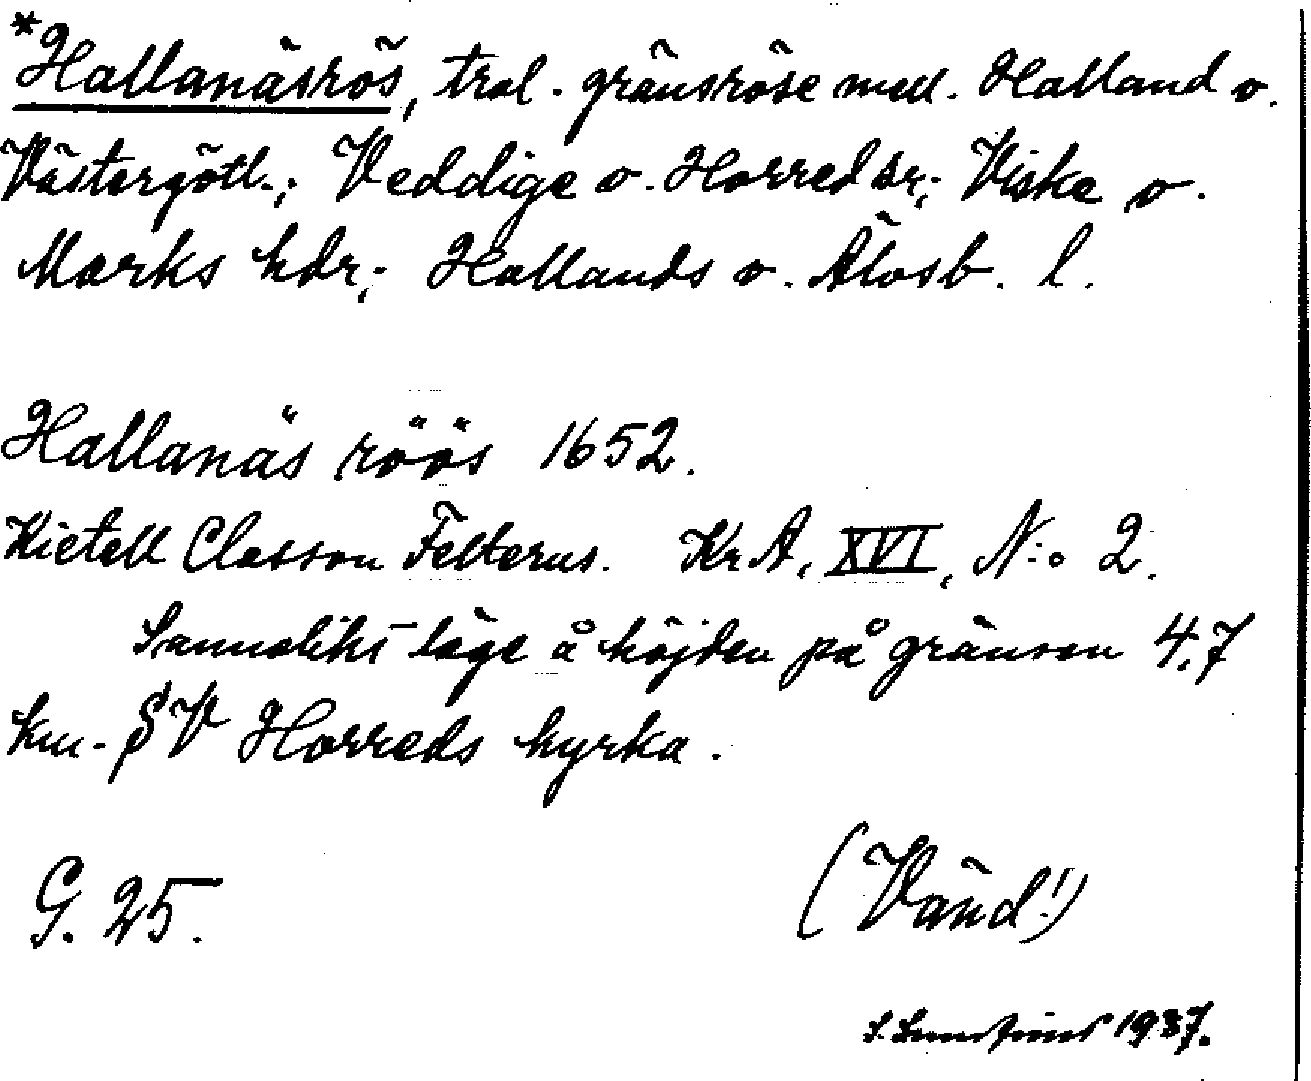 *Hallanäsrös, trol. gränsröse mell. Halland o.
Västergötl.; Veddige o. Horred sr; Viske o.
Marks hdr; Hallands o. Älvsb. l.
Hallanäs röös 1652.
Kietell Classon Felterus. KrA, XVI, N:o 2.
Sannolikt läge å höjden på gränsen 4,7
km. SV Horreds kyrka.
G. 25.
(Vänd!)
S. 1937.